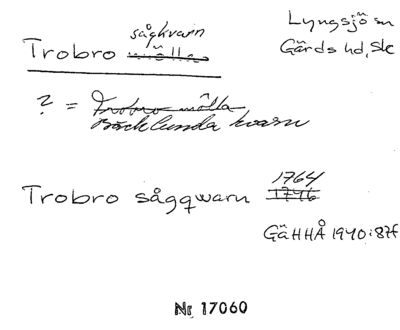 Lyngsjö sn
Gärds hd, Sk
sågkvarn
Trobro mölla
? = Trobro mölla
Bäcklunda kvarn
1764
Trobro sågqwarn 1746
GäHHÅ 1940:87f
Nr 17060